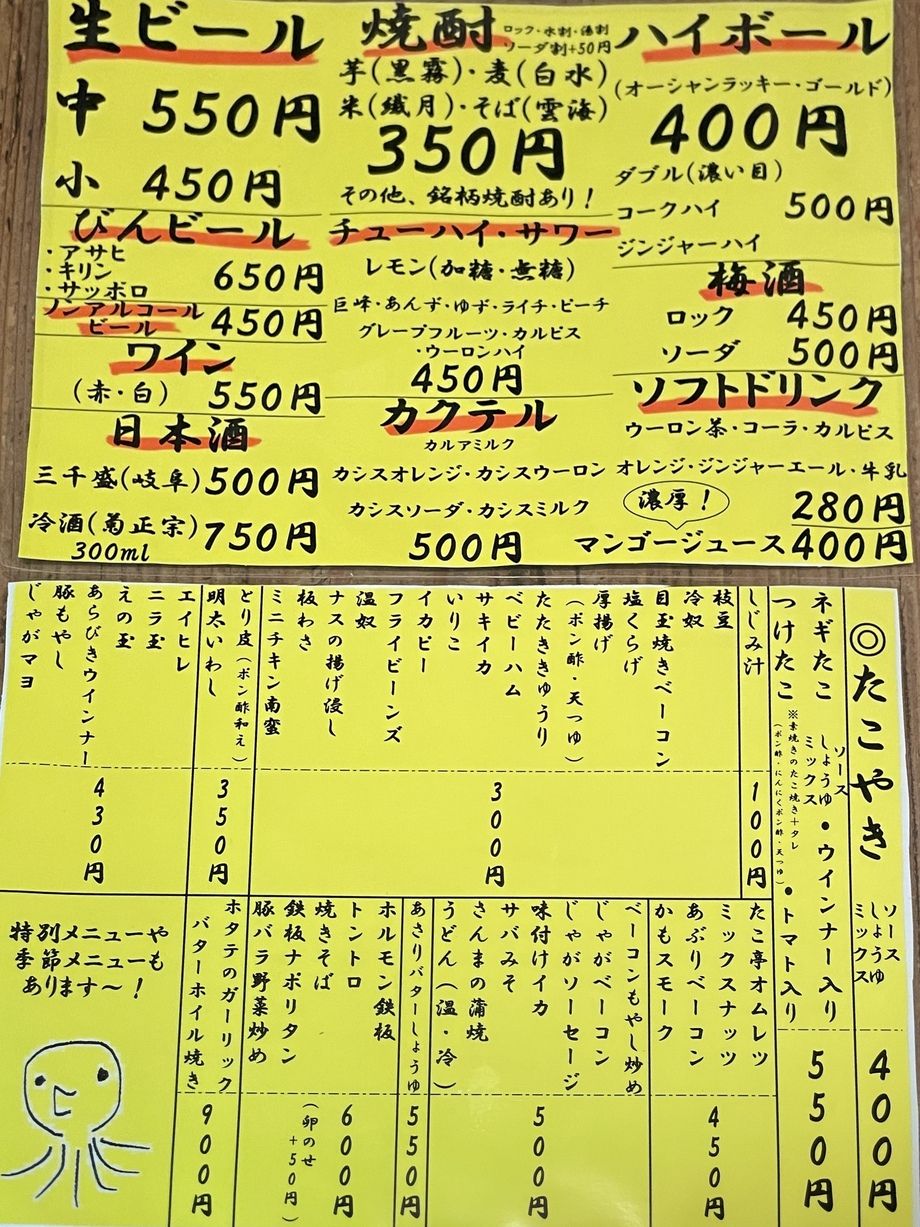 生ビール
中 550円
小 450円
びんビール
・アサヒ
・キリン
・サッポロ
650円
ノンアルコール
ビール
450円
ワイン
(赤・白) 550円
日本酒
三千盛(岐阜)500円
冷酒(菊正宗)750円
300ml
焼酎
ロック・水割・湯割
ソーダ割+50円
芋(黒霧)・麦(白水)
米(繊月)・そば(雲海)
350円
その他、銘柄焼酎あり!
チューハイ・サワー
レモン(加糖・無糖)
巨峰・あんず・ゆず・ライチ・ピーチ
グレープフルーツ・カルピス
・ウーロンハイ
450円
カクテル
カルアミルク
カシスオレンジ・カシスウーロン
カシスソーダ・カシスミルク
500円
ハイボール
(オーシャンラッキー・ゴールド)
400円
ダブル(濃い目)
コークハイ
ジンジャーハイ
500円
梅酒
ロック 450円
ソーダ 500円
ソフトドリンク
ウーロン茶・コーラ・カルピス
オレンジ・ジンジャーエール・牛乳
280円
濃厚!
マンゴージュース400円
◎たこやき
ソース
しょうゆ
ミックス
400円
ネギたこ
ソース
しょうゆ
ミックス
・ウインナー入り
つけたこ
※素焼きのたこ焼き+タレ
(ポン酢・にんにくポン酢・天つゆ)
・トマト入り
550円
しじみ汁
100円
枝豆
冷奴
目玉焼きベーコン
塩くらげ
厚揚げ
(ポン酢・天つゆ)
たたききゅうり
ベビーハム
サキイカ
いりこ
イカピー
フライビーンズ
温奴
ナスの揚げ浸し
板わさ
ミニチキン南蛮
300円
とり皮(ポン酢和え)
明太いわし
350円
エイヒレ
ニラ玉
えの玉
あらびきウインナー
豚もやし
じゃがマヨ
430円
たこ亭オムレツ
ミックスナッツ
あぶりベーコン
かもスモーク
450円
ベーコンもやし炒め
じゃがベーコン
じゃがソーセージ
味付けイカ
サバみそ
さんまの蒲焼
うどん(温・冷)
500円
あさりバターしょうゆ
550円
ホルモン鉄板
トントロ
焼きそば
鉄板ナポリタン
豚バラ野菜炒め
600円
(卵のせ
+50円)
ホタテのガーリック
バターホイル焼き
900円
特別メニューや
季節メニューも
あります〜!